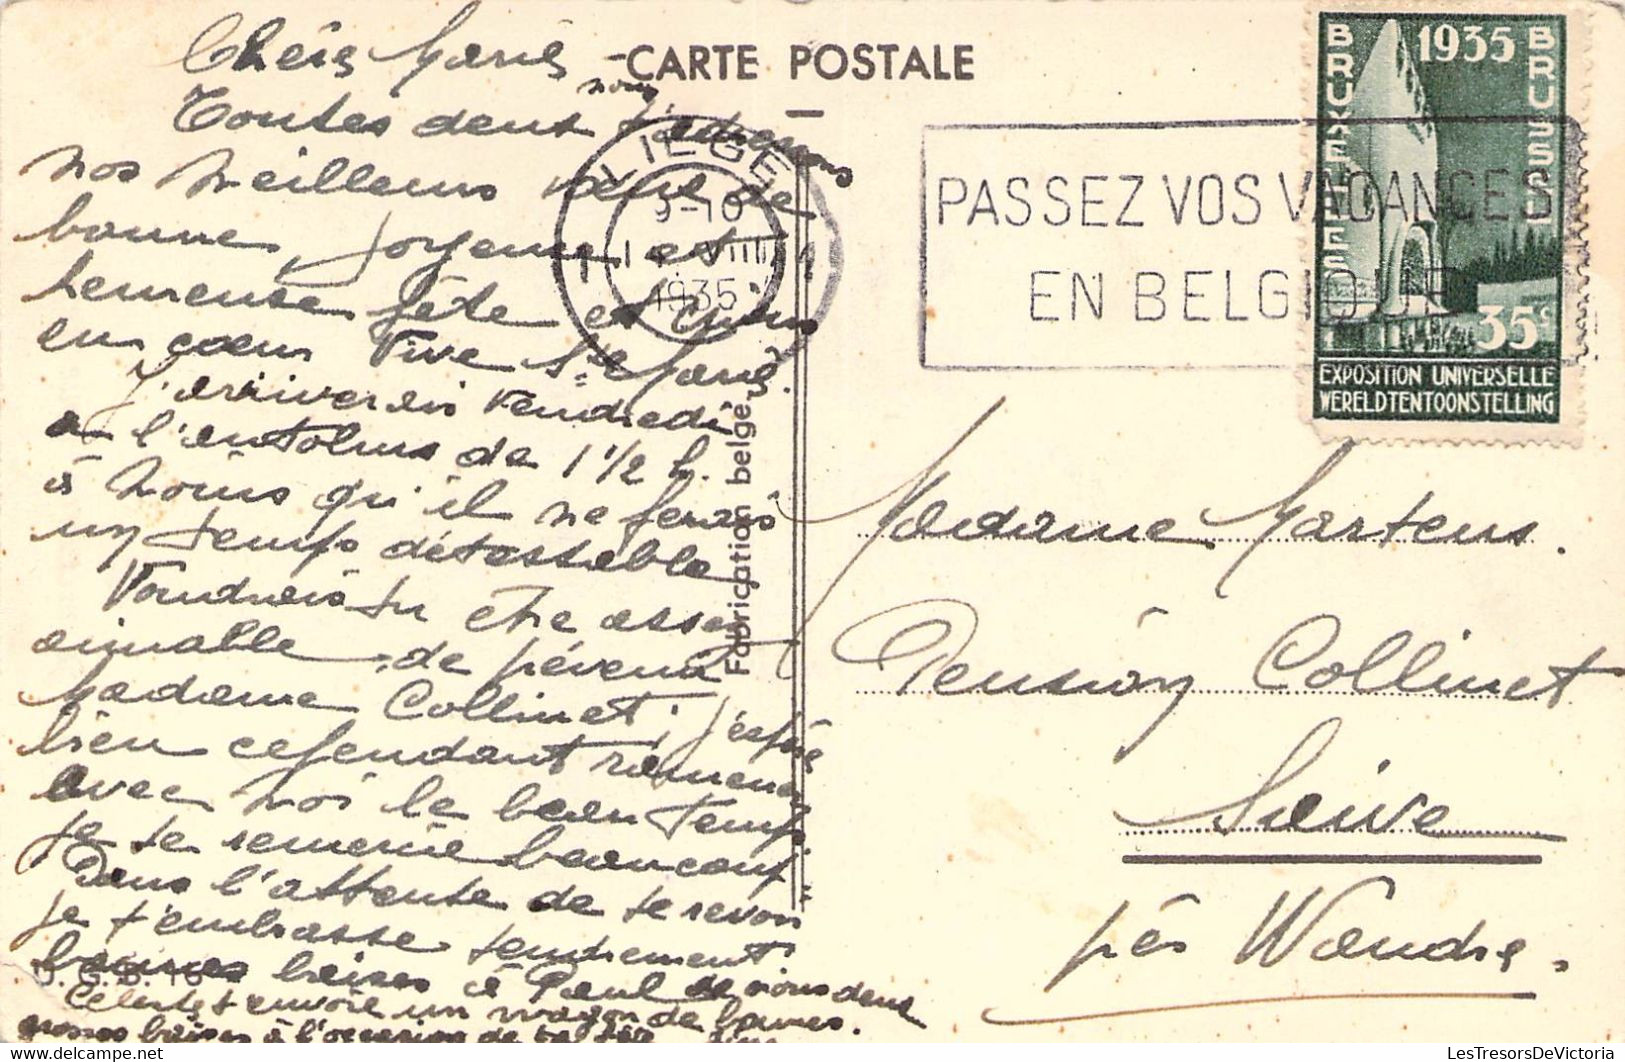 CARTE POSTALE
Chère Marie,
Toutes deux nous t'adressons
nos meilleurs vœux de
bonne, joyeuse et
heureuse fête et crions
en cœur Vive Ste Marie.
J'arriverai vendredi
à l'autobus de 1 1/2 h.
à moins qu'il ne ferais
un temps détestable
Voudrais tu être assez
aimable de prévenir
Madame Collinet, j'espère
bien cependant ramener
avec moi le beau temps
je te remercie beaucoup
Dans l'attente de te revoir
je t'embrasse tendrement
bonnes baises à Paul de nous deux
Celeste t envoie un wagon de bonnes
grosses baises à l'occasion de ta fête
J. C. B. 16
Fabrication belge
LIEGE
9-10
VIII
1935
1 1
PASSEZ VOS VACANCES
EN BELGIQUE
1935
BRUXELLES
BRUSSEL
35c
EXPOSITION UNIVERSELLE
WERELDTENTOONSTELLING
Madame Martens.
Pension Collinet
Saive
près Wandre.
LesTresorsDeVictoria